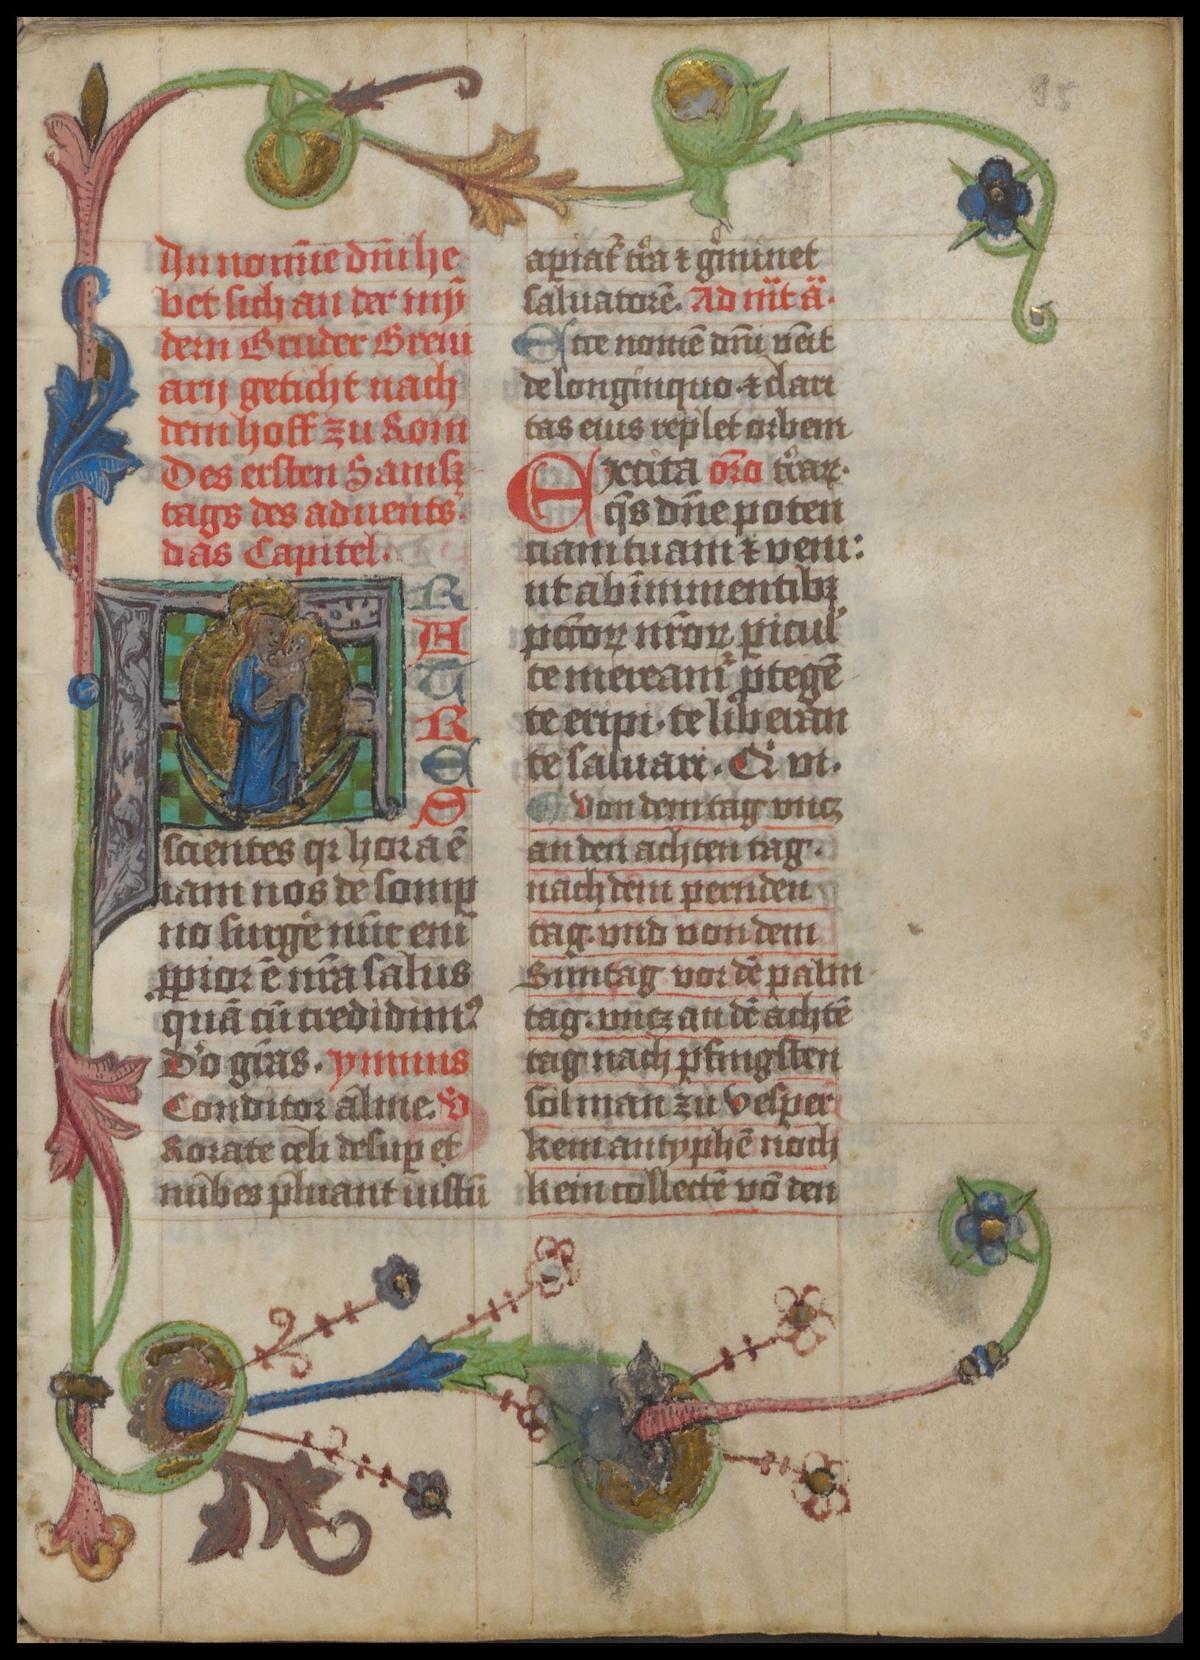 In nomīe dn̄i he
bet sich an der mȳ
dern Bruder Brevi
arij geticht nach
dem hoff zu Rom
Des ersten Samsz
tags des advents.
das Capitel.
F R
A
T
R
E
S
scientes qꝛ hora ē
iam nos de somp
no surgẽ nūc enī
ꝓpior ē nr̄a salus
quā cū credidimꝰ
D'o gr̄as. ymnus
Conditor alme. v̊
Rorate celi desuꝑ et
nubes pluant iustū
aꝑiat͛ t͛ra ⁊ g͛minet
saluatorē. Ad mḡt ā.
Ecce nomē dn̄i venit
de longinquo ⁊ clari
tas eius replet orbem
Excita or̄o tuaꝫ.
qs̄ dn̄e poten
tiam tuam ⁊ veni:
ut ab īminentibꝫ
pctōꝝ nr̄oꝝ ꝑicul'
te meream͛ ꝓtegē
te eripi. te liberan
te saluari. Q͛ vi.
Von dem tag vncz
an den achten tag.
nach dem pernden
tag. vnd von dem
Suntag vor dē palm
tag. vncz an dē achtē
tag nach pfingsten
sol man zu Vesper
kein antyphē noch
kein collectē vō den